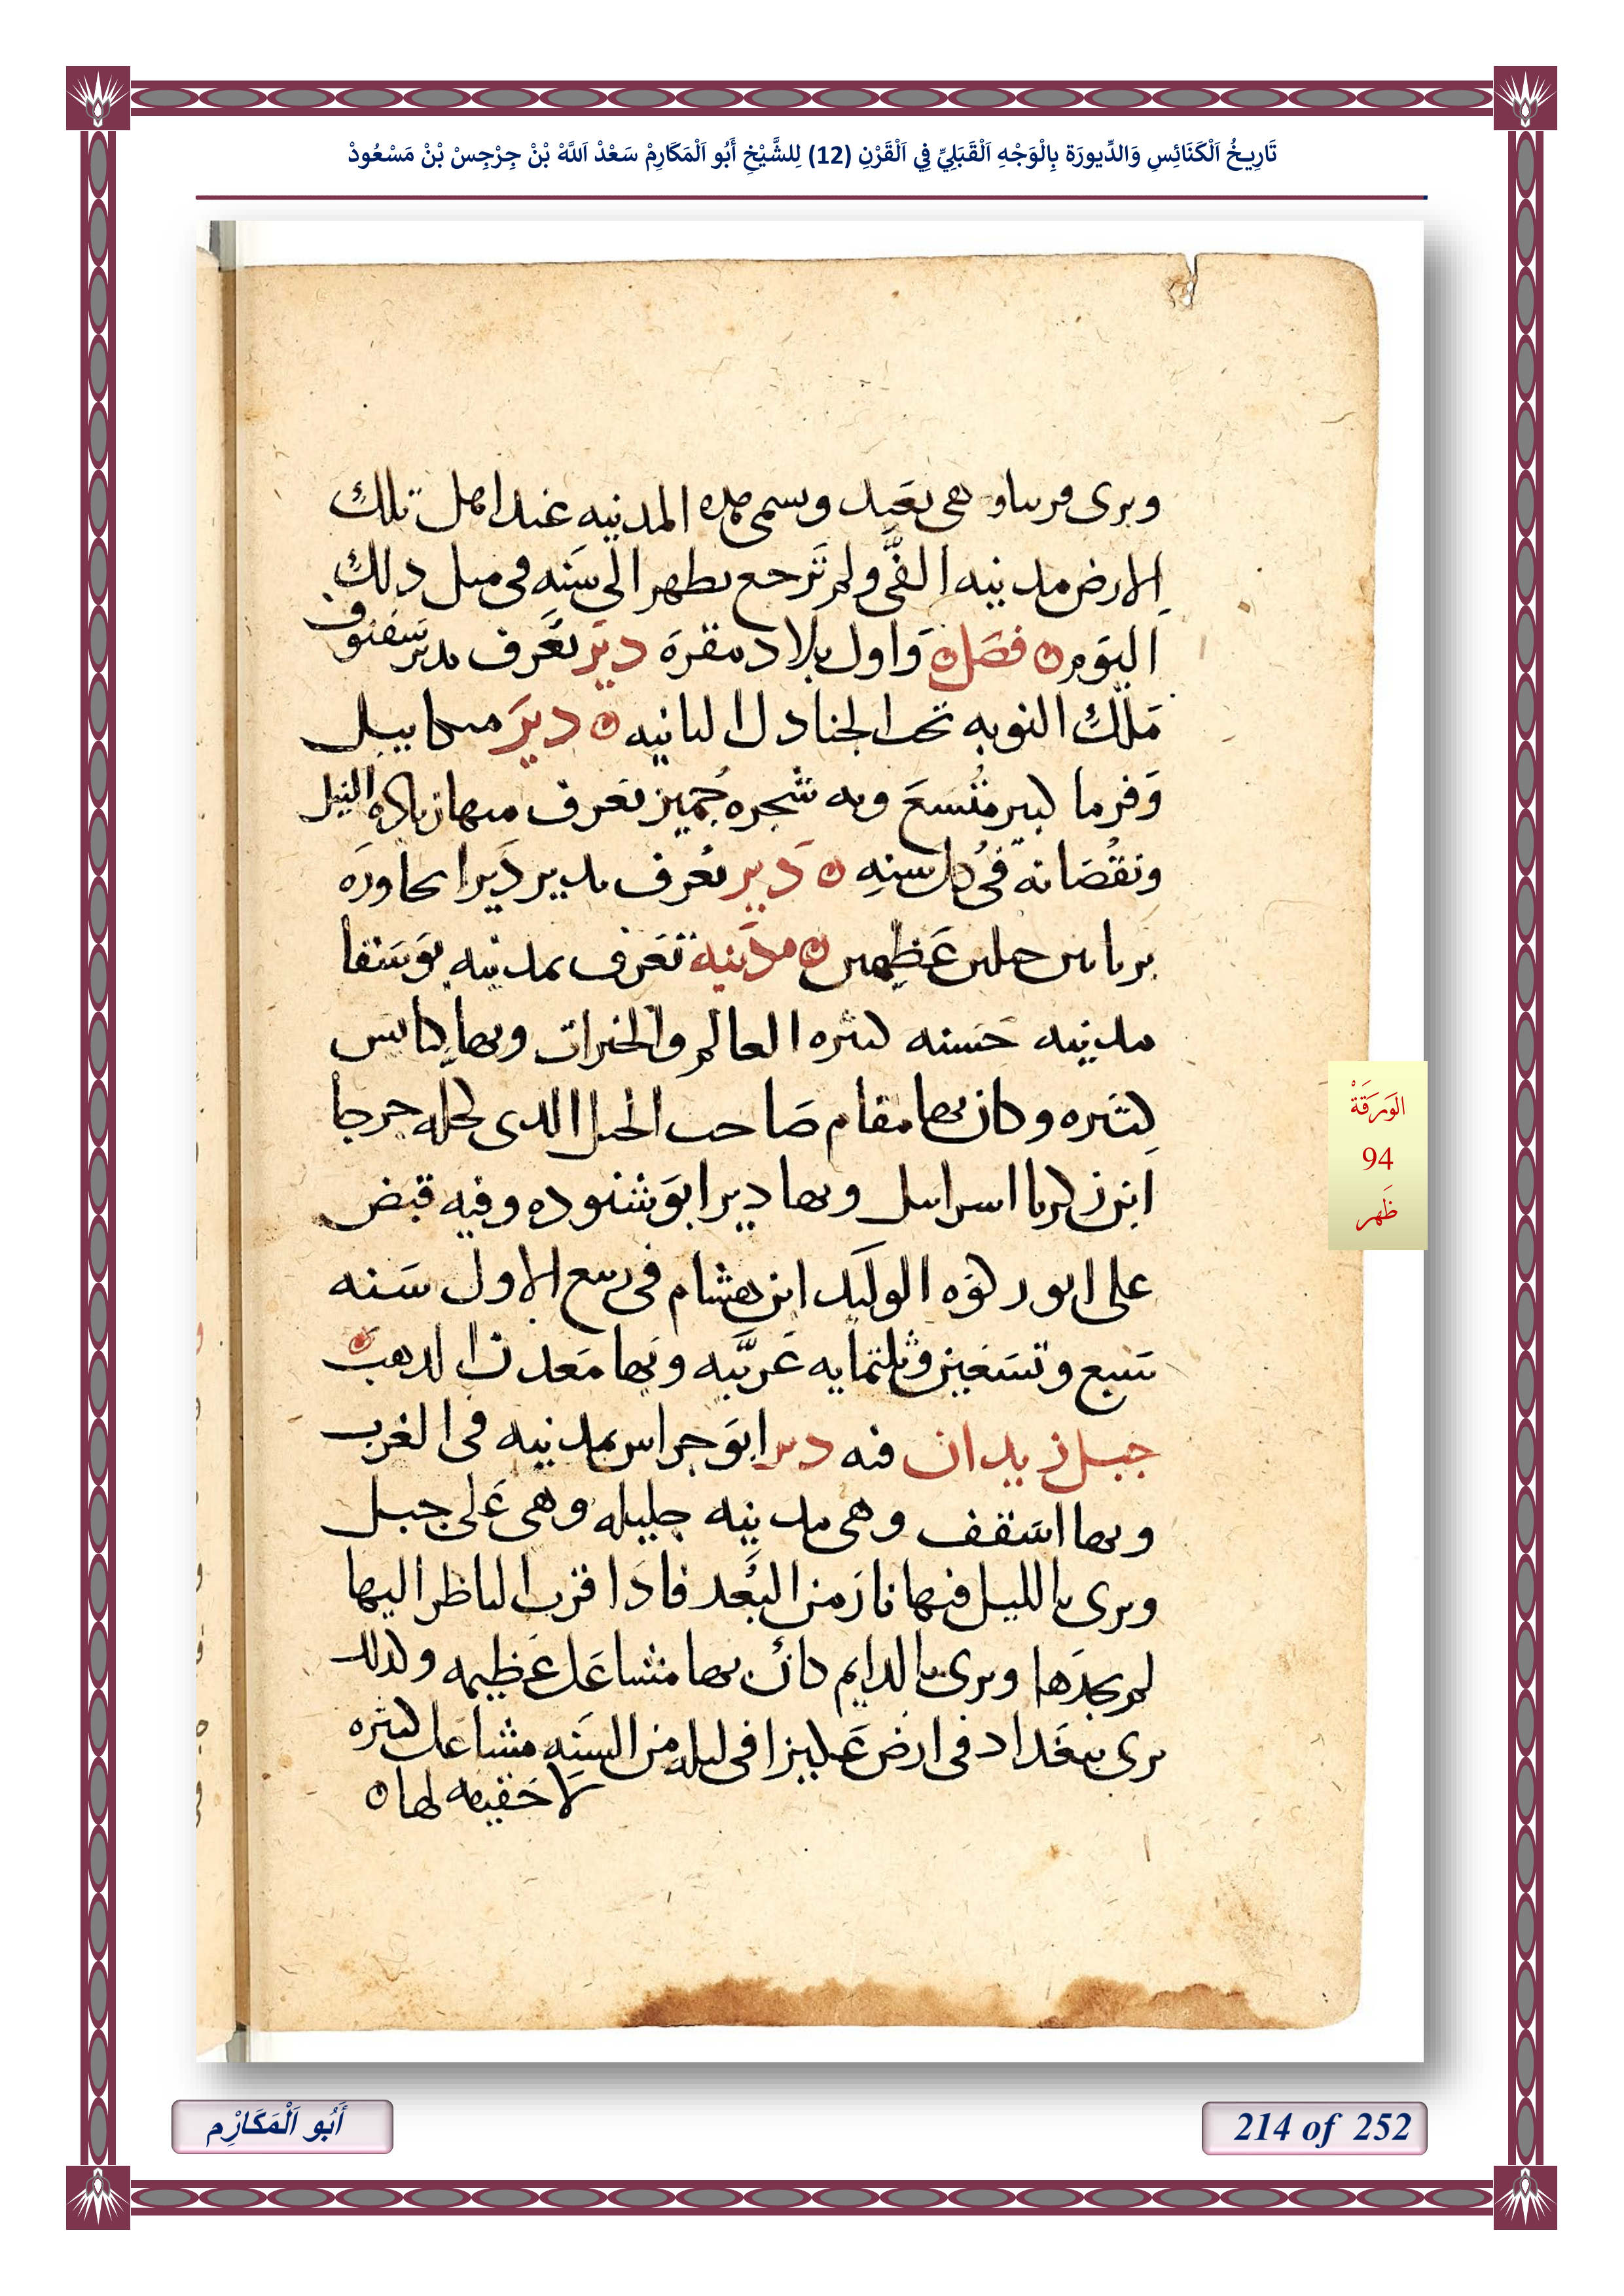 تَارِيخُ اَلْكَنَائِسِ وَالدِّيورَة بِالْوَجْهِ اَلْقَبَلِيِّ فِي اَلْقَرْنِ (12) لِلشَّيْخِ أَبُو اَلْمَكَارِمْ سَعْدْ اَللَّهْ بْنْ جِرْجِسْ بْنْ مَسْعُودْ
وىرى قرىىاو هى بعيد وىسمى هده المدىنه عند اهل تلك
الارض مدينه الفى ولم ترجع ىطهر الى سنه فى مىل دلك
اليوم فصل واول بلاد مقره دير تعرف بدير سفنوف
ملك النوبه تحت الجنادل الثانيه دير ميكاييل
وفرما كبير متسع وبه شجره جميز تعرف منها زياده النيل
ونقصانه فى كل سنه دير تعرف بدير ديرا بحاوره
بربا بين جبلين عظيمين مدينه تعرف بمدينه بوسقا
مدينه حسنه كثيره العالم والخيرات وبها كنائس
كثيره وكان بها مقام صاحب الجبل الدى كحله جرجا
ابن زكريا اسرائيل وبها دير ابو شنوده وفيه قبض
على ابو ركوه الوليد ابن هشام فى ربيع الاول سنه
سبع وتسعين وثلثمايه عربيه وبها معدن الدهب
جبل زيدان فيه دير ابو جراس بمدينه فى الغرب
وبها اسقف وهى مدينه جليله وهى على جبل
ويرى بالليل فيها نار من البعد فادا قرب الناظر اليها
لم يجدها ويرى بالدايم كان بها مشاعل عظيمه وكدلك
يرى ببغداد فى ارض عكبرا فى ليله من السنه مشاعل كثيره
لا حقيقه لها
الوَرَقَةْ
94
ظَهر
أَبُو اَلْمَكَارِْم
214 of 252